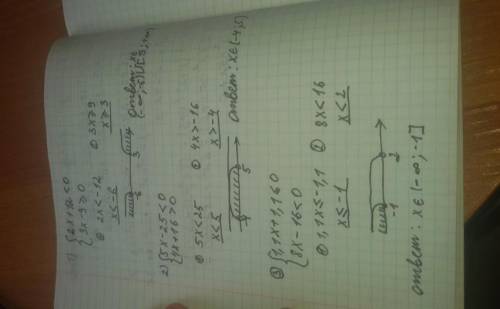 1) { 2x+12<0
{ 3x-9≥0
① 2x<-12 ② 3x≥9
x<-6 x≥3
-6 3
ответ: x∈
2) { 5x-25<0
{ 4x+16>0
① 5x<25 ② 4x>-16
x<5 x>-4
5
ответ: x∈(-4;5)
③ { 1,1x+1,1≤0
{ 8x-16<0
① 1,1x≤-1,1 ② 8x<16
x≤-1 x<2
-1 2
ответ: x∈(-∞;-1]